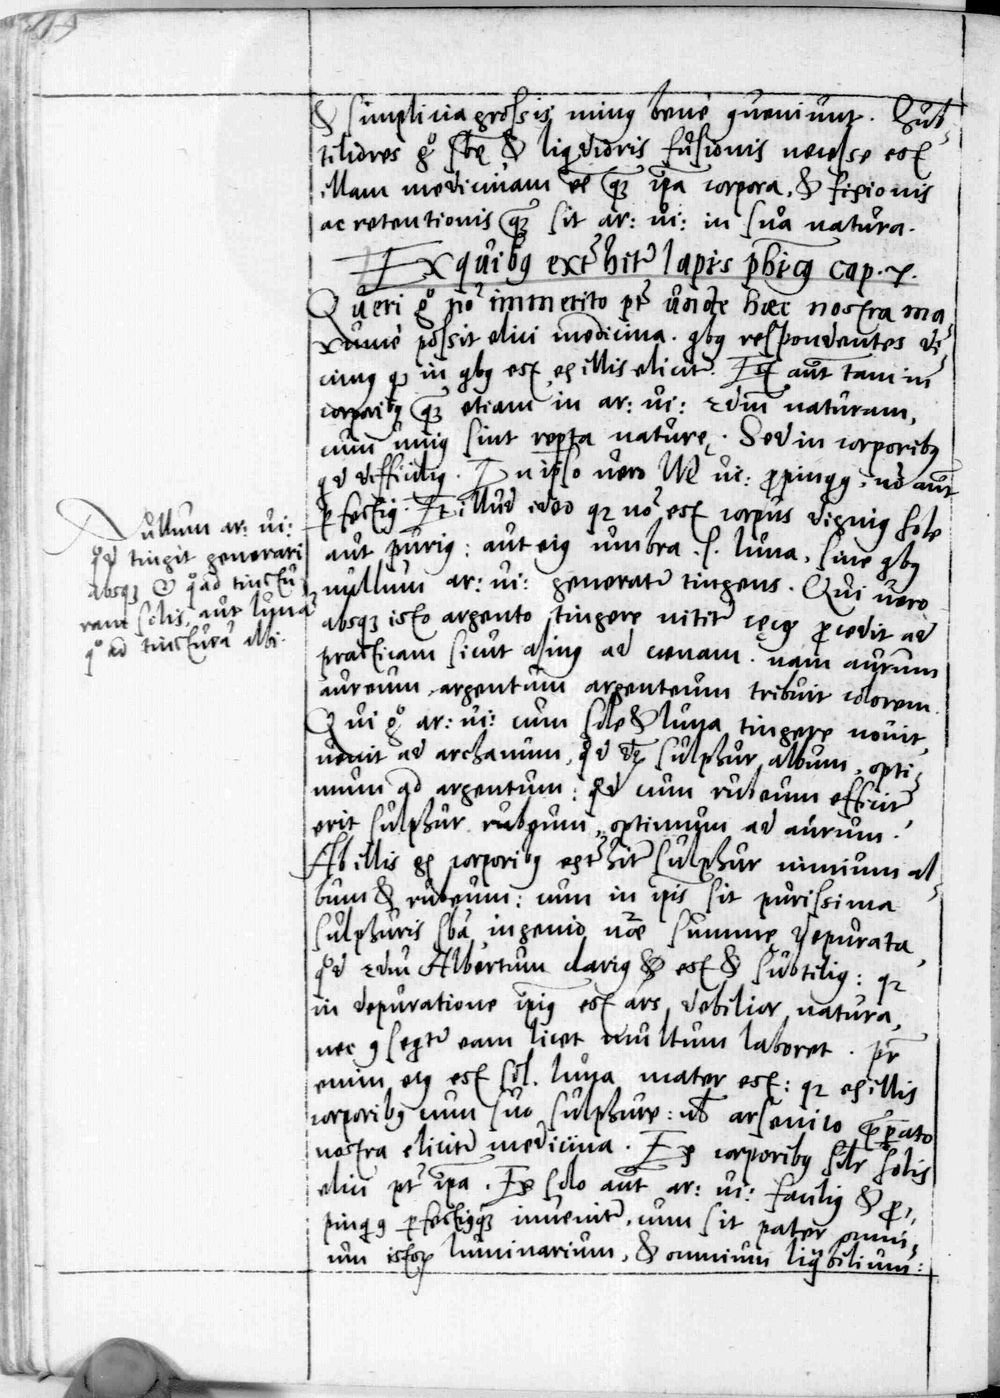 & simplicia grossis minus bene ꝯueniunt. Sub-
tilioris gͦ sbe & liqdioris fusionis necesse est
illam medicinam ee qꝫ ipa corpora, & fixionis
ac retentionis qꝫ sit ar: ui: in sua natura.
Ex quibꝰ extrhitr lapis phicꝰ cap. 7.
Queri gͦ no immerito pt unde hæc nostra ma-
xime possit elici medicina. qbꝰ respondentes di-
cimꝰ qͩ in qbꝰ est, ex illis elicitr. Est aut tam in
corporibꝰ qꝫ etiam in ar: ui: scdm naturam,
cum uniꝰ sint reperta naturę. Sed in corporibꝰ
qd difficiliꝰ. In ipso uero ui: ꝓpinquiꝰ, no aut
ꝑfectiꝰ. Et illud ideo qꝛ no est corpus digniꝰ sole
aut puriꝰ: aut eiꝰ umbra .s. luna, sine qbꝰ
nullum ar: ui: generatr tingens. Qui uero
absqꝫ isto argento tingere nititr cęcꝰ ꝓcedit ad
practicam sicut asinꝰ ad cænam. nam aurum
aureum, argentum argenteum tribuit colorem.
Qui gͦ ar: ui: cum sole & luna tingere nouit,
uenit ad archanum, qd dr sulphur album, opti-
mum ad argentum: qd cum rubeum efficitr
erit sulphur rubeum, optimum ad aurum.
Ab illis gͦ corporibꝰ extrhitr sulphur nimium al-
bum & rubeum: cum in ipis sit purissima
sulphuris sba, ingenio nae summe depurata,
qd scdm Albertum clariꝰ & est & subtiliꝰ: qꝛ
in depuratione ipiꝰ est ars debilior natura,
nec ꝯseqtr eam licet multum laboret. pr
enim eiꝰ est sol. luna mater est: qꝛ ex illis
corporibꝰ cum suo sulphure: ul arsenico pꝑato
nostra elicitr medicina. Ex corporibꝰ solis
elici pt ipa. Ex solo aut ar: ui: faciliꝰ & ꝓ-
pinqꝰ ꝑfectiꝰqꝫ inuenitr, cum sit pater omni-
um istoꝝ luminarium, & omnium liqbilium:
Nullum ar: ui:
qd tingit generari
absqꝫ ☉ qͦad tinctu-
ram solis, aut luna
qͦad tincturā albi.